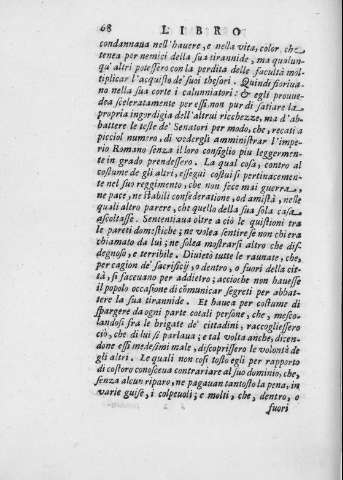 68 LIBRO
condannaua nell'hauere, e nella vita, color che
tenea per nemici della sua tirannide, ma qualun-
qu'altri potessero con la perdita delle facultà mol-
tiplicar l'acquisto de' suoi thesori. Quindi fioriua-
no nella sua corte i calunniatori: & egli proue-
dea sceleratamente per essi non pur di satiare la
propria ingordigia dell'altrui ricchezze, ma d'ab-
battere le teste de' Senatori per modo, che, recati a
picciol numero, di vedergli amministrar l'impe-
rio Romano senza il loro consiglio piu leggermen-
te in grado prendessero. La qual cosa, contro al
costume de gli altri, esseguì costui sì pertinacemen-
te nel suo reggimento, che non fece mai guerra,
ne pace, ne stabilì confederatione, od amistà, nelle
quali altro parere, che quello della sua sola casa
ascoltasse. Sententiaua oltre a ciò le quistioni tra
le pareti domestiche; ne volea sentire se non chi era
chiamato da lui; ne solea mostrarsi altro che dis-
degnoso, e terribile. Diuietò tutte le raunate, che,
per cagion de' sacrificij, o dentro, o fuori della cit-
tà, si faceuano per addietro; accioche non hauesse
il popolo occasione di comunicar segreti per abbat-
tere la sua tirannide. Et hauea per costume di
spargere da ogni parte cotali persone, che, mesco-
landosi fra le brigate de' cittadini, raccogliessero
ciò, che di lui si parlaua; e tal volta anche, dicen-
done essi medesimi male, discoprissero le volontà de
gli altri. Le quali non così tosto egli per rapporto
di costoro conosceua contrariare al suo dominio, che,
senza alcun riparo, ne pagauan tantosto la pena, in
varie guise, i colpeuoli; e molti, che, dentro, o
fuori